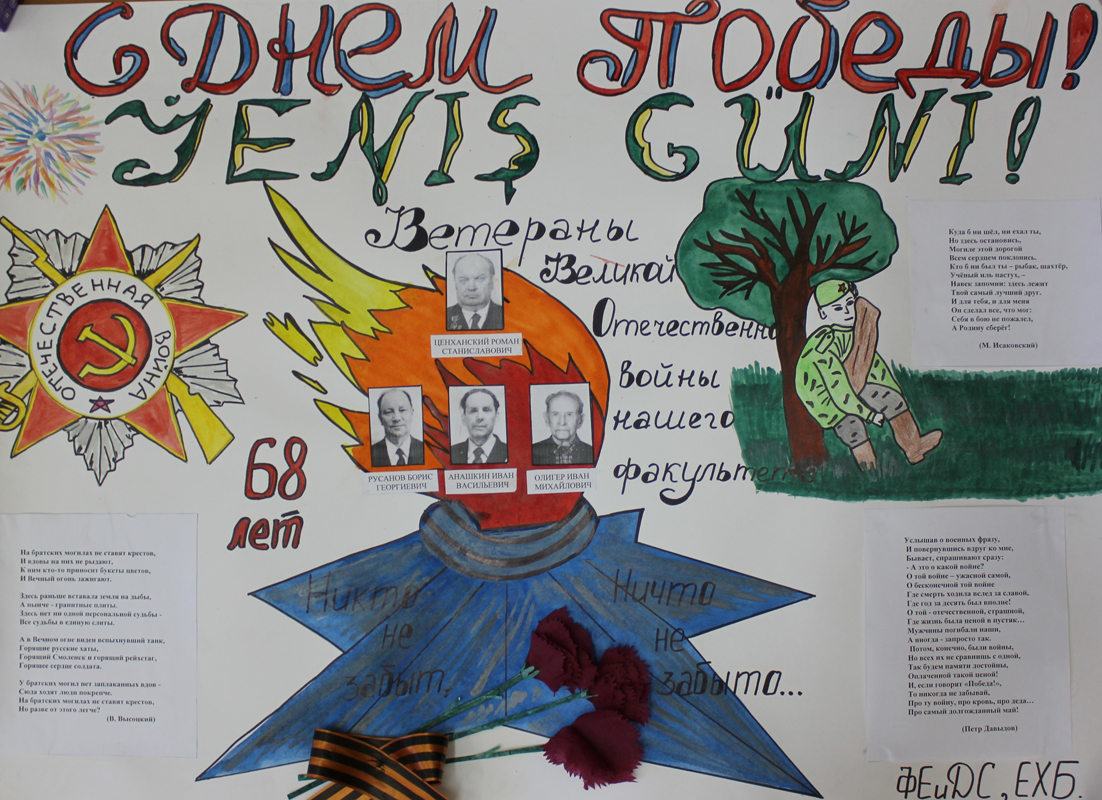 С ДНЕМ ПОБЕДЫ!
ÝEŇIŞ GÜNI!
Ветераны
Великой
Отечественно
войны
нашего
факультета
ОТЕЧЕСТВЕННАЯ ВОЙНА
68
лет
ЦЕНХАНСКИЙ РОМАН
СТАНИСЛАВОВИЧ
РУСАНОВ БОРИС
ГЕОРГИЕВИЧ
АНАШКИН ИВАН
ВАСИЛЬЕВИЧ
ОЛИГЕР ИВАН
МИХАЙЛОВИЧ
Куда б ни шёл, ни ехал ты,
Но здесь остановись,
Могиле этой дорогой
Всем сердцем поклонись.
Кто б ни был ты – рыбак, шахтёр,
Учёный иль пастух, –
Навек запомни: здесь лежит
Твой самый лучший друг.
И для тебя, и для меня
Он сделал все, что мог:
Себя в бою не пожалел,
А Родину сберёг!
(М. Исаковский)
На братских могилах не ставят крестов,
И вдовы на них не рыдают,
К ним кто-то приносит букеты цветов,
И Вечный огонь зажигают.
Здесь раньше вставала земля на дыбы,
А нынче - гранитные плиты.
Здесь нет ни одной персональной судьбы -
Все судьбы в единую слиты.
А в Вечном огне виден вспыхнувший танк,
Горящие русские хаты,
Горящий Смоленск и горящий рейхстаг,
Горящее сердце солдата.
У братских могил нет заплаканных вдов -
Сюда ходят люди покрепче.
На братских могилах не ставят крестов,
Но разве от этого легче?
(В. Высоцкий)
Никто
не
забыт,
Ничто
не
забыто...
Услышав о военных фразу,
И повернувшись вдруг ко мне,
Бывает, спрашивают сразу:
- А это о какой войне?
О той войне – ужасной самой,
О бесконечной той войне
Где смерть ходила вслед за славой,
Где год за десять был вполне!
О той - отечественной, страшной,
Где жизнь была ценой в пустяк…
Мужчины погибали наши,
А иногда - запросто так.
Потом, конечно, были войны,
Но всех их не сравнишь с одной,
Так будем памяти достойны,
Оплаченной такой ценой!
И, если говорят «Победа!»,
То никогда не забывай,
Про ту войну, про кровь, про деда…
Про самый долгожданный май!
(Петр Давыдов)
ФЕиДС, ЕХБ.